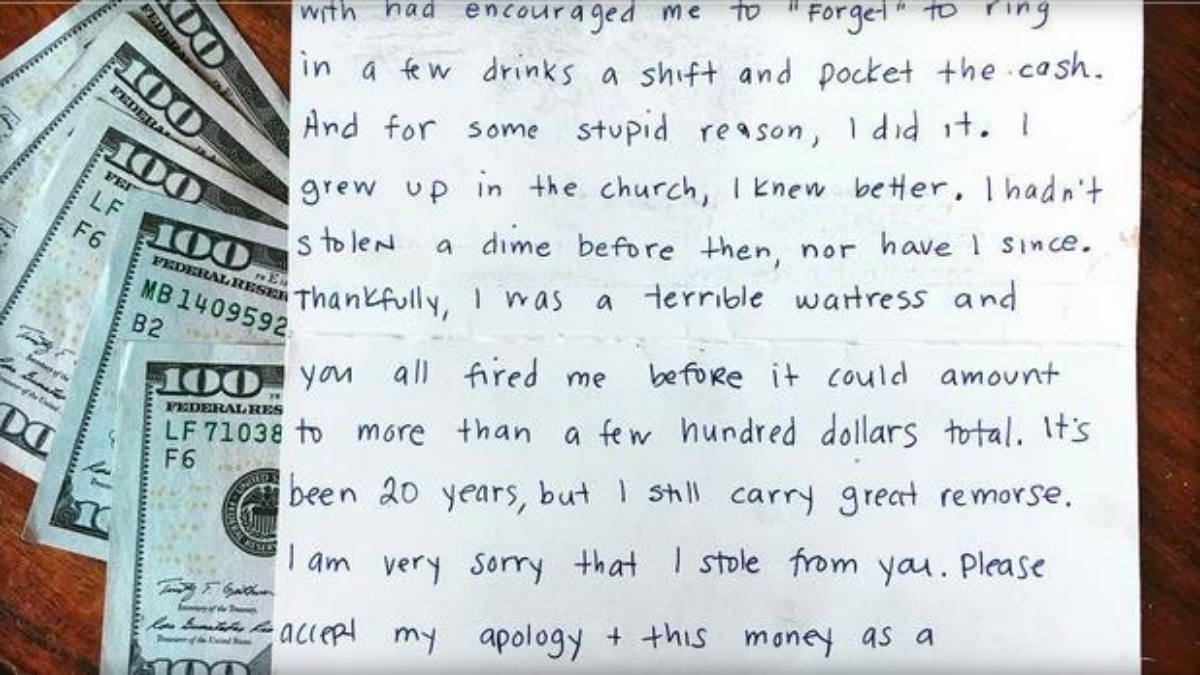 100
FEDERAL
100
FEDERA
100
FE
LF
F6
100
FEDERAL RESER
MB 1409592
B2
100
FEDERAL RES
LF 71038
F6
Secretary of the Treasury.
Treasurer of the United States.
100
with had encouraged me to "Forget" to ring
in a few drinks a shift and pocket the cash.
And for some stupid reason, I did it. I
grew up in the church, I knew better. I hadn't
stolen a dime before then, nor have I since.
Thankfully, I was a terrible waitress and
you all fired me before it could amount
to more than a few hundred dollars total. It's
been 20 years, but I still carry great remorse.
I am very sorry that I stole from you. Please
accept my apology + this money as a